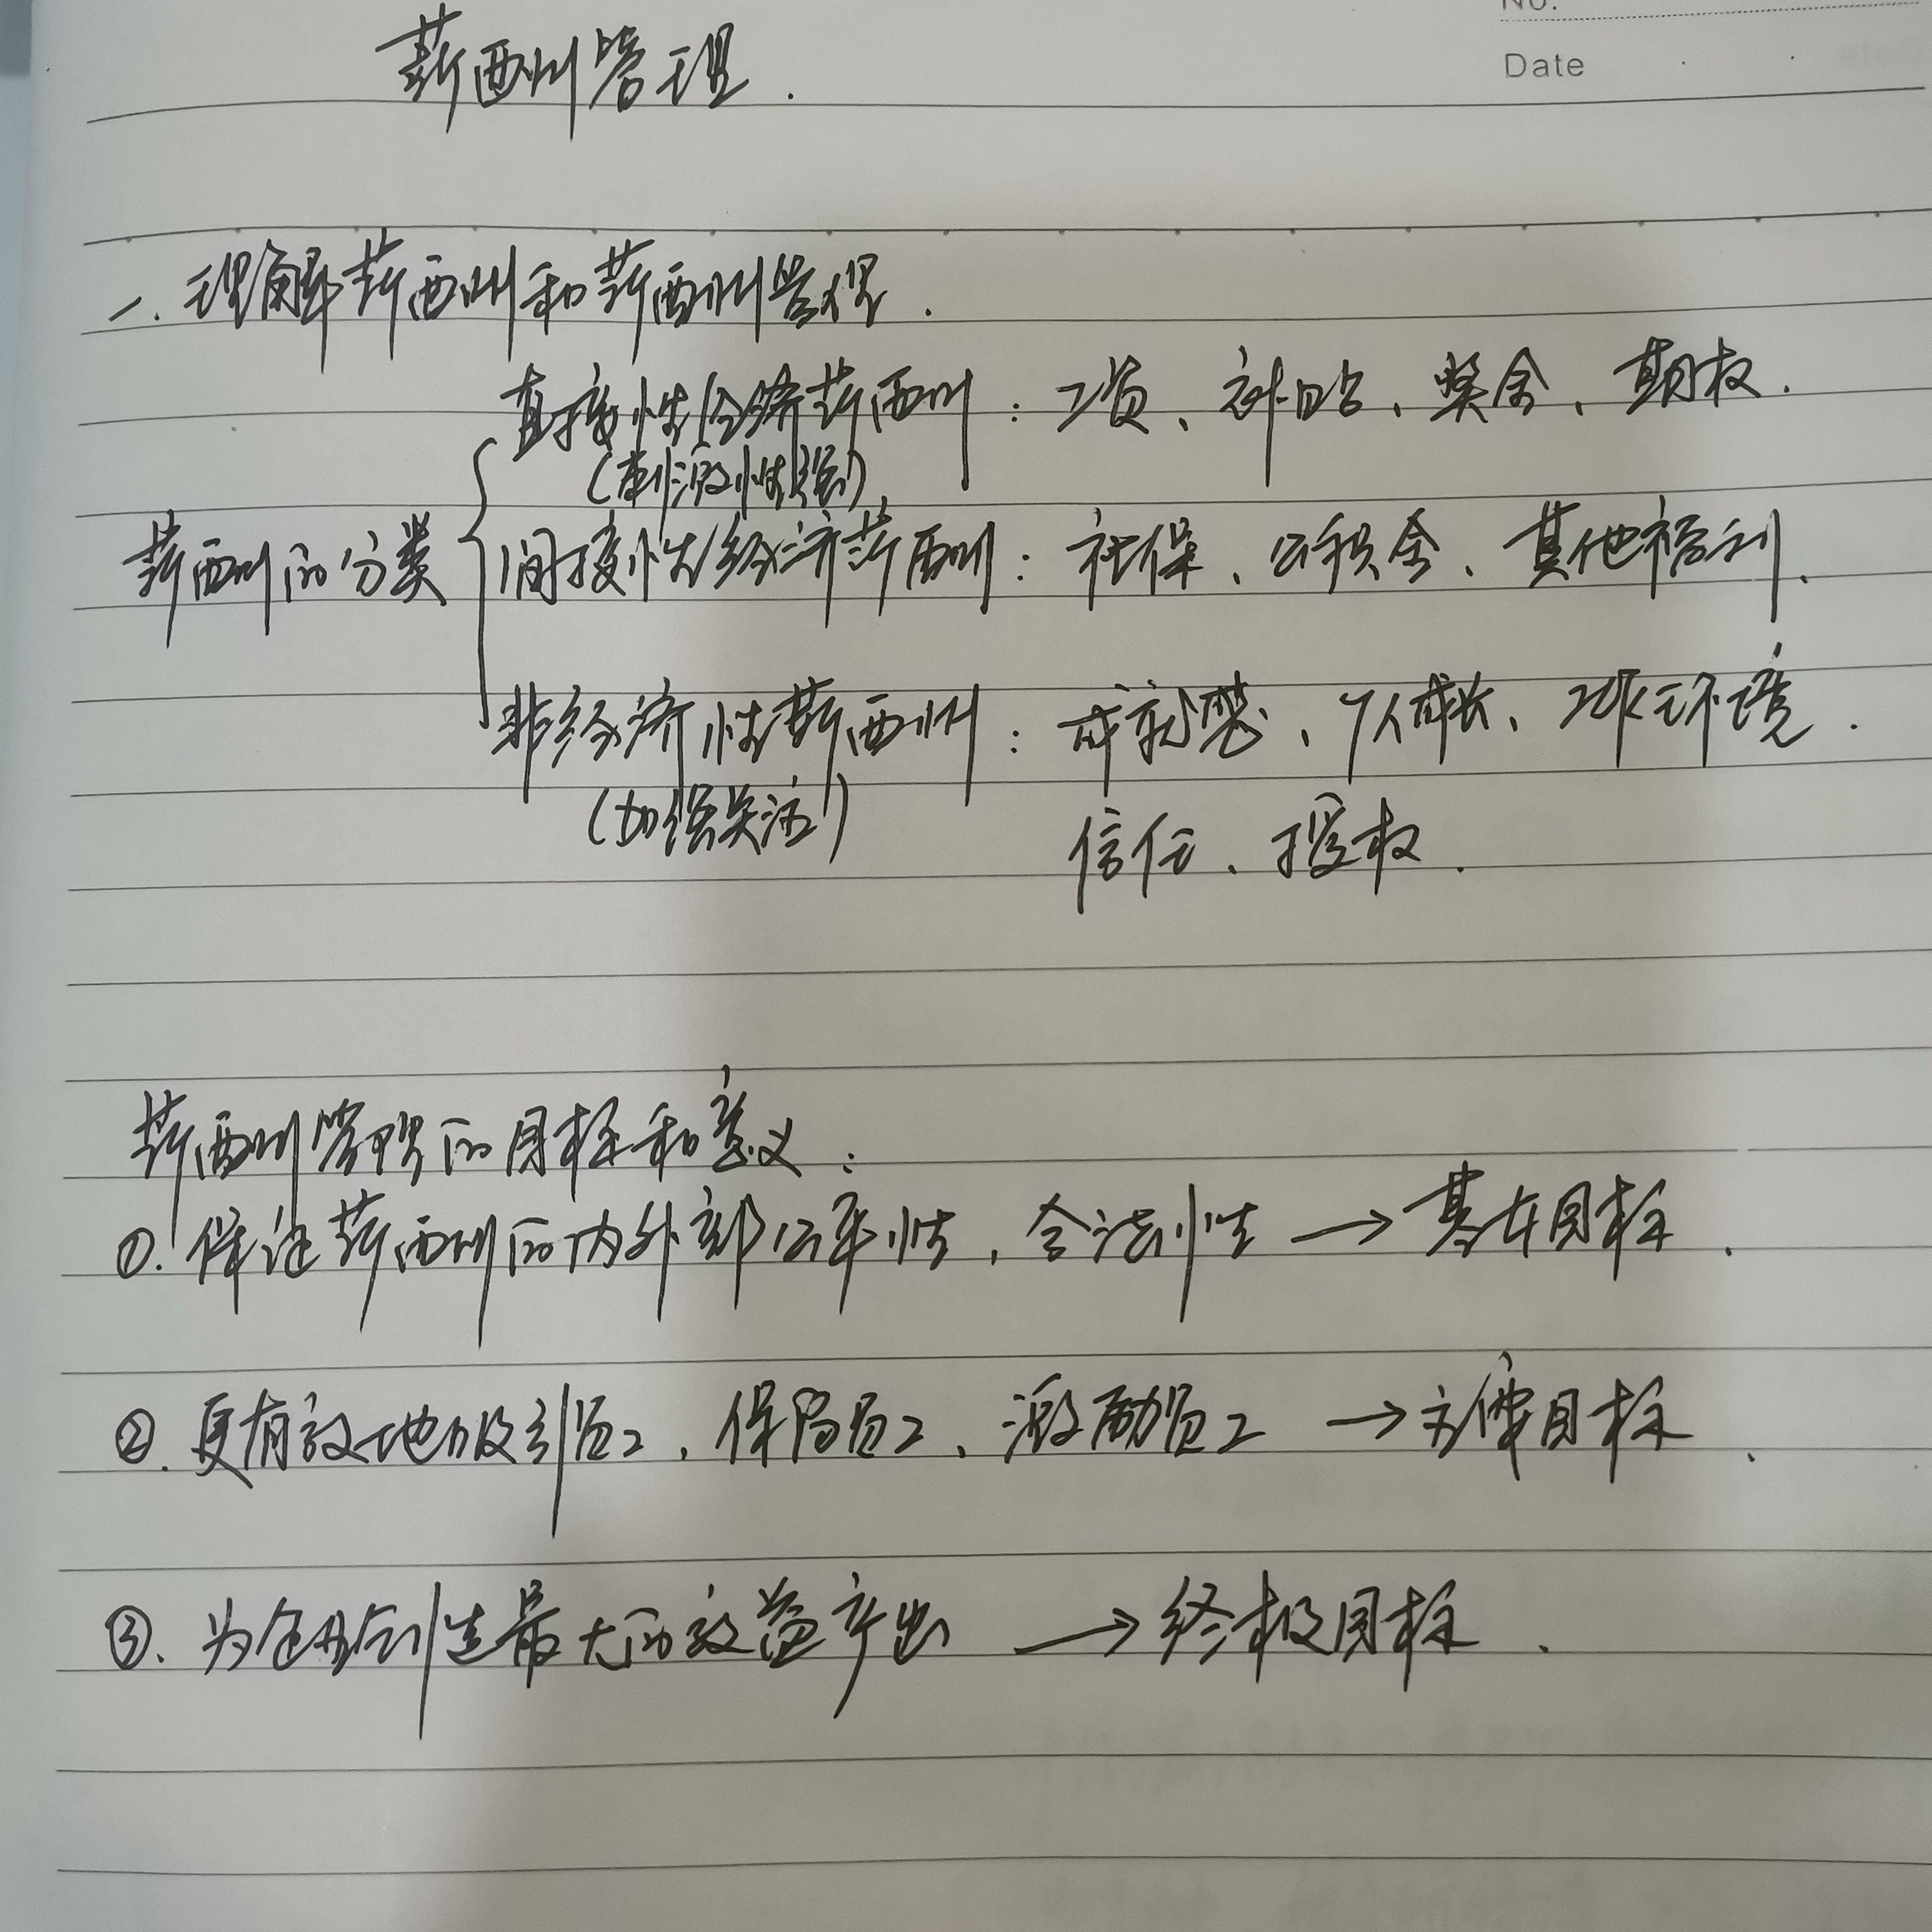 No.
Date
薪酬管理.
一. 理解薪酬和薪酬管理.
直接性经济薪酬: 工资、补贴、奖金、期权.
(刺激性强)
薪酬的分类
间接性经济薪酬: 社保、公积金、其他福利.
非经济性薪酬: 成就感、个人成长、工作环境.
(加强关注)
信任、授权.
薪酬管理的目标和意义:
①. 保证薪酬的内外部公平性, 合法性 → 基本目标.
②. 更有效地吸引员工, 保留员工、激励员工 → 目标.
③. 为企业创造最大的效益产出 → 终极目标.